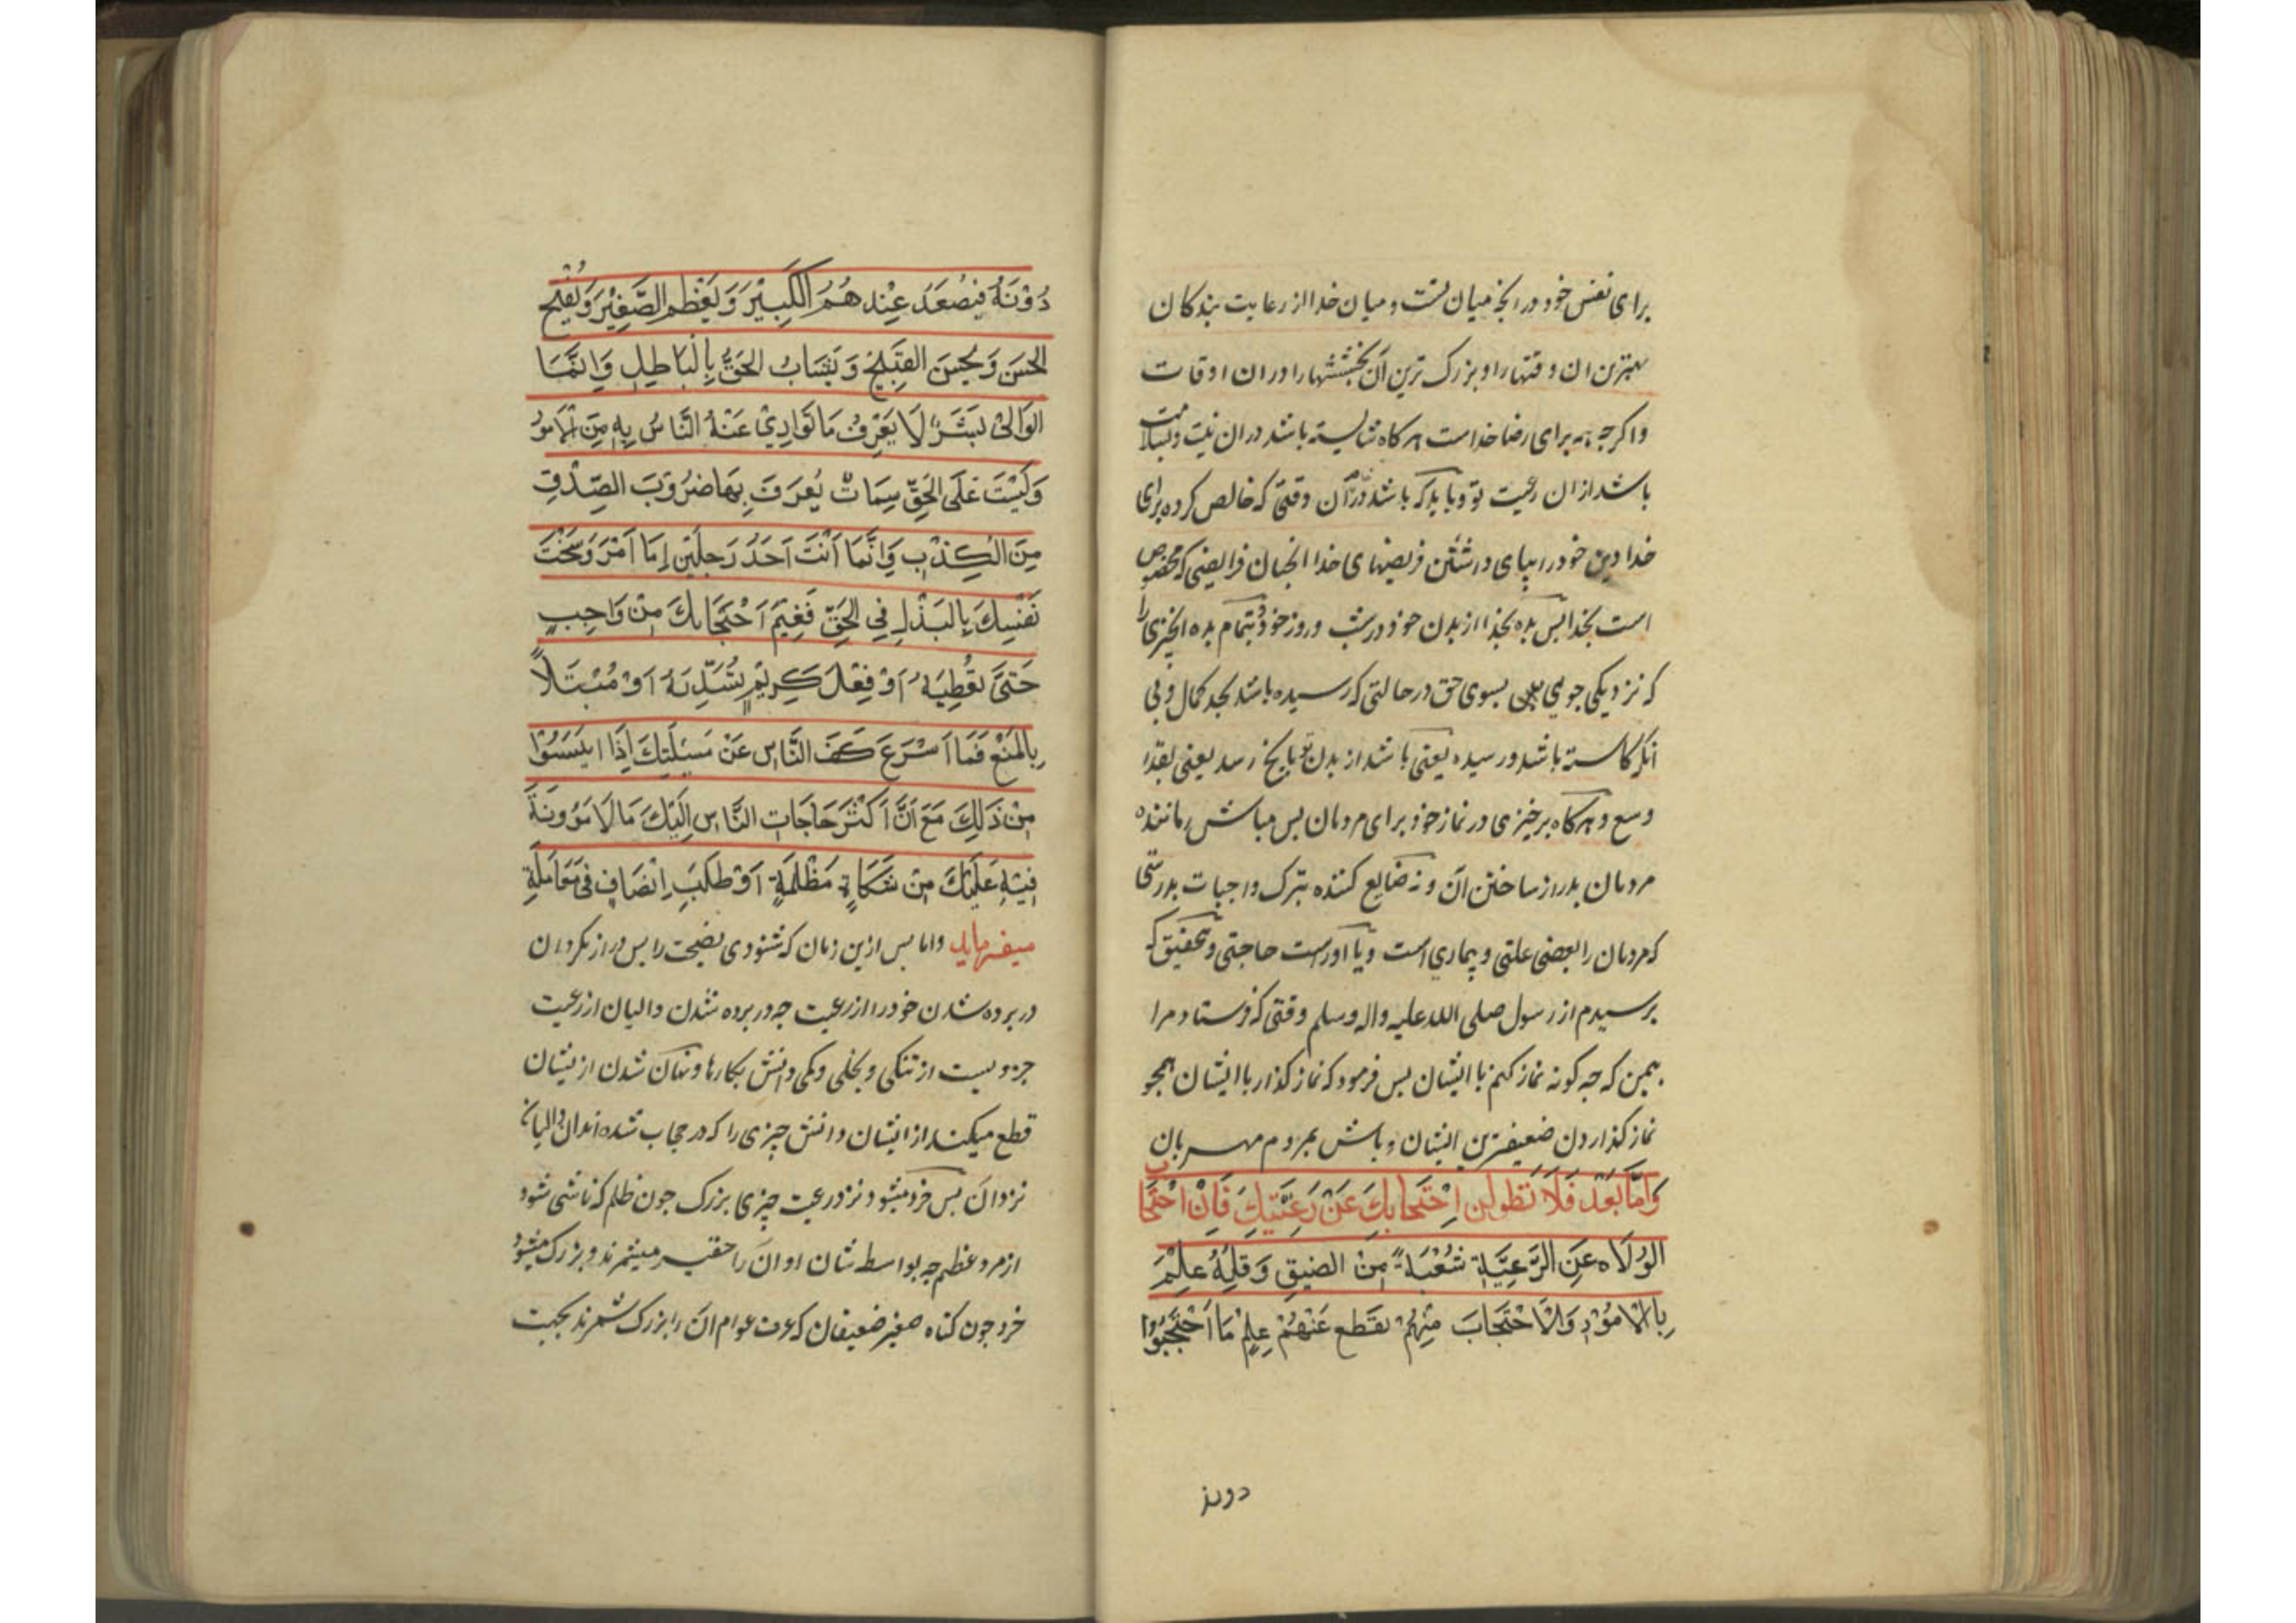 برای نفس خود در انچه میان تست و میان خدا از رعایت بندکان
بهترین ان وقتها را و بزرک ترین آن بخششها را در ان اوقات
واکرچه همه برای رضا خداست هرکاه شایسته باشد در ان نیت و بسلامت
باشد از ان رعیت تو و باید که باشد در آن وقتی که خالص کرده برای
خدا دین خود را بپای داشتن فریضهای خدا انجنان فرایضی که مخصوص
است بخدا پس بده بخدا از بدن خود در شب و روز خود و بتمام بده انچیزی را
که نزدیکی جویی بان بسوی حق در حالتی که رسیده باشد بحد کمال و بی
انکه کاسته باشد و رسیده یعنی باشد از بدن تو بانچه رسد یعنی بقدر
وسع و هرکاه برخیزی در نماز خود برای مردمان پس مباش رماننده
مردمان بدراز ساختن ان و نه ضایع کننده بترک واجبات بدرستی
که مردمان را بعضی علتی و بیماری است و یا آوراست حاجتی و بتحقیق که
پرسیدم از رسول صلی الله علیه واله وسلم وقتی که فرستاد مرا
بیمن که چه کونه نماز کنم با ایشان پس فرمود که نماز کذار با ایشان همچو
نماز کذاردن ضعیفترین ایشان و باش بمردم مهربان
وَاَمَّا بَعْدَ فَلَا تَطولن اِحْتِجابكَ عَنْ رَعِيَّتِكَ فَاِنْ احْتِجَابَ
الوُلَاه عَنِ الرَّعِيَّةِ شُعْبَةً مِنْ الضيقِ وَقِلَةُ عِلْمَ
بِالْاُمُوْرِ وَالْاحْتِجَابَ مِنْهُمْ يَقطَع عَنْهُمْ عِلِمْ مَا احْتَجَبُوْا
دونه
دُوْنَهُ فَيَصْعَدُ عِنْدهُمُ الْكَبِيْرَ وَيَعْظم الصَّغِيْرَ وَيُقْبِحُ
الحَسَن وَيَحْسن القَبِيْحَ وَيَشَابُ الْحَقُّ بِالْبَاطِلِ وَاِنَّمَا
الوَالِىْ بَشَرٌ لَا يَعْرِفُ مَا تَوَارِىْ عَنْهُ النَّاسُ بِهِ مِنَ الْاُمُورُ
وَلَيْسَتَ عَلَى الْحَقِّ سِمَاتٌ يُعرَفَ بِهَا ضرُوْبَ الصِّدْقِ
مِنَ الْكِذْبِ وَاِنَّمَا اَنْتَ اَحَدُ رَجلَيْنِ اِمَا اَمْرَ وَسَخَتْ
نَفْسِكَ بِالبَذْلِ فِي الحَقِّ فَفِيْمَ اَحْتِجَابكَ مِنْ وَاجِبٍ
حَتىَّ تعْطِيَهُ اَوْ فِعْلَ كَرِيْمٍ تُسَدِّيَهُ اَوْ مُبْتَلاً
بِالمَنْعِ فَمَا اَسْرَعَ كَفَ النَّاسِ عَنْ مَسِئَلَتِكَ اِذَا ايئَسُوْا
مِنْ ذَلِكَ مَعَ اَنَّ اَكْثَرَ حَاجَاتِ النَّاسِ اِلَيْكَ مَالَا مَؤونَةَ
فِيْهِ عَلَيْكَ مِنْ شَكَاةٍ مَظْلِمَةٍ اَوْ طَلَبِ اِنْصَافٍ فِى مُعَامِلَةٍ
میفرماید واما پس ازین زمان که شنودی نصیحت را پس دراز مکردان
در پرده شدن خود را از رعیت چه در پرده شدن والیان از رعیت
جزویست از تنکی و بخلی و کمی دانش بکارها و پنهان شدن از یشان
قطع میکند از ایشان دانش چیزی را که در حجاب شده اند ان والیان
نزد ان پس خرد میشود نزد رعیت چیزی بزرک چون ظلم که ناشی شود
از مرد عظیم چه بواسطه شان او ان را حقیر میشمرند و بزرک میشود
خرد چون کناه صغیر ضعیفان که عرف عوام ان را بزرک شمرند بجهت